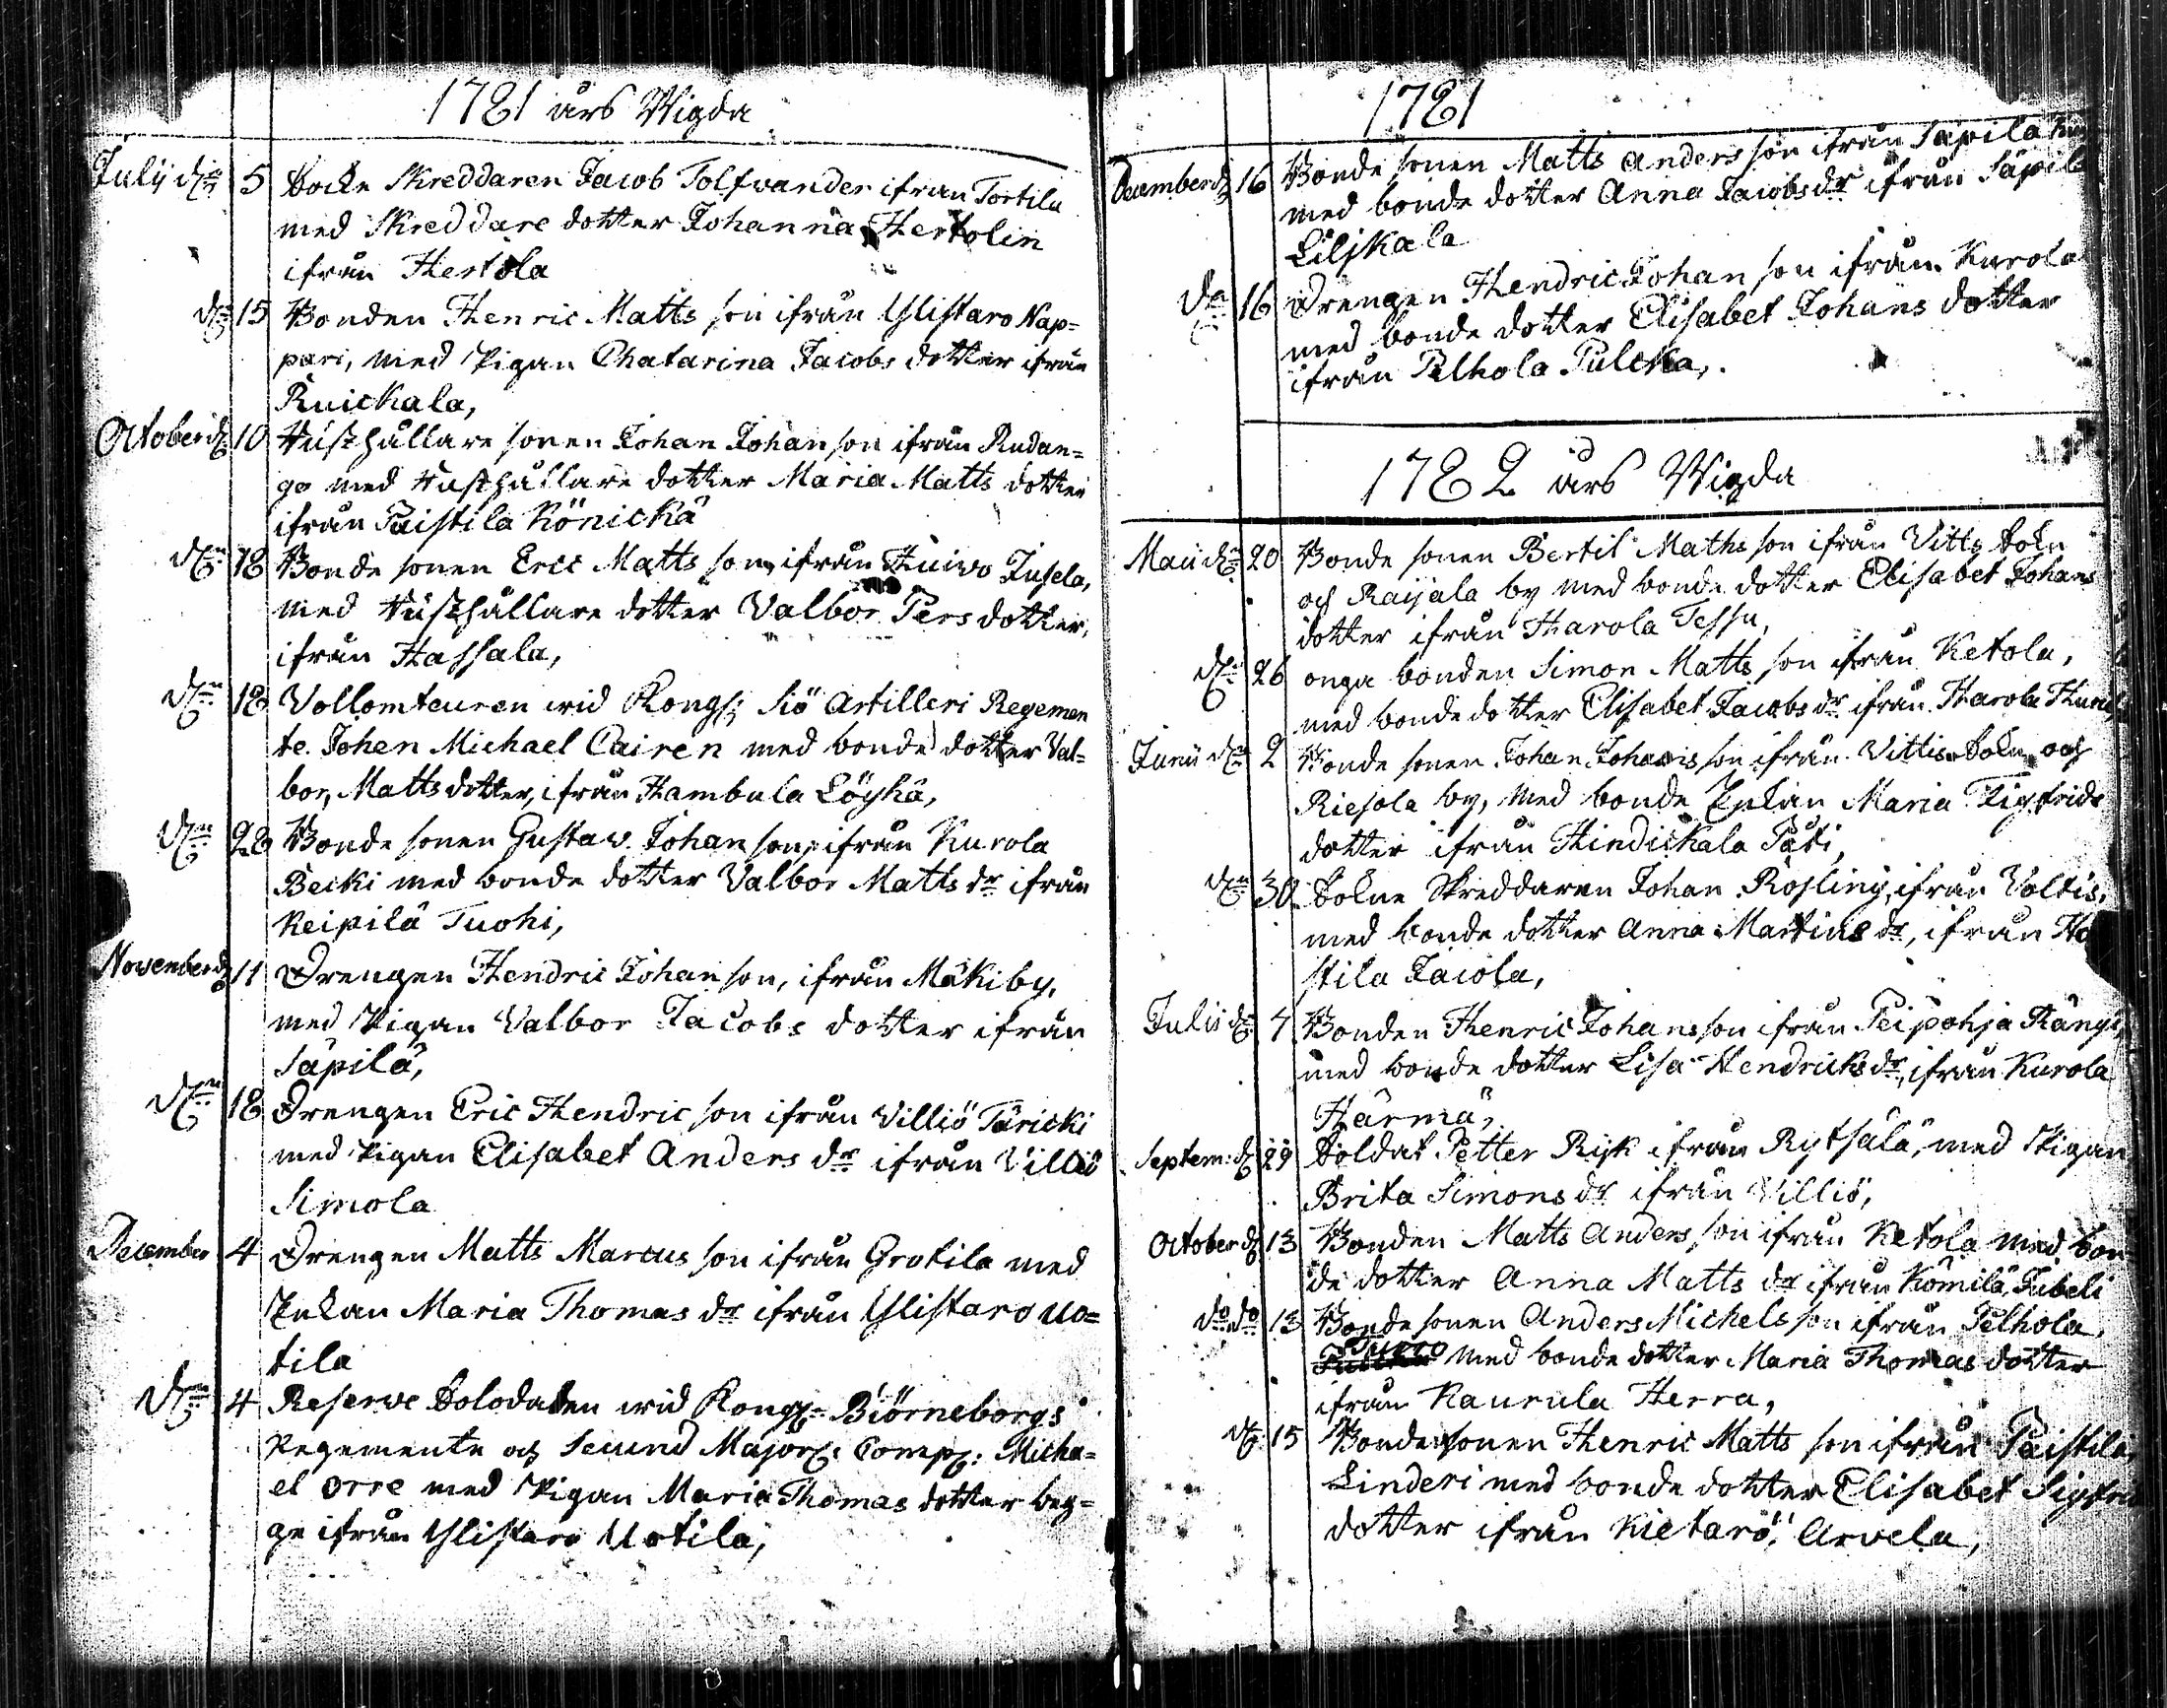 1781 års Wigda
Julii den 5 Sockn Skreddaren Jacob Tolfvander ifrån Tortila
med Skreddare dotter Johanna Hertolin
ifrån Hertola
den 15 Bonden Henric Matts son ifrån Ylistaro Nap=
pari, med Pigan Chatarina Jacobs dotter ifrån
Ruickala,
October d. 10 Husthållare sonen Johan Johan son ifrån Rudan=
go med Husthållare dotter Maria Matts dotter
ifrån Paistila Könickä
den 18 Bonde sonen Eric Matts son, ifrån Huiwo Jusela,
med Husthållare dotter Valbor Pers dotter,
ifrån Hassala,
den 18 Vollomteuren wid Kongs: Siö Artilleri Regemen
te. Johen Michael Cairen med bonde dotter Val=
bor, Matts dotter, ifrån Hambula Löyhä,
den 28 Bonde sonen Gustaw Johan son, ifrån Kurola
Becki med bonde dotter Valbor Matts dr ifrån
Keipilä Tuohi,
November d. 11 Drengen Hendric Johan son, ifrån Mäkiby,
med Pigan Valbor Jacobs dotter ifrån
Säpilä,
den 18 Drengen Eric Hendric son ifrån Villiö Täricki
med Pigan Elisabet Anders dr ifrån Villiö
Simola
December 4 Drengen Matts Marcus son ifrån Grotila med
Enkan Maria Thomas dr ifrån Ylistaro Uo=
tila
den 4 Reserve Solodaten wid Kongl: Biörneborgs
Regemente och Secund Majors: Comp: Micha=
el Orre med Pigan Maria Thomas dotter beg=
ge ifrån Ylistaro Uotila,
1781
December d. 16 Bonde sonen Matts Anders son ifrån Säpilä
med bonde dotter Anna Jacobs dr ifrån Säpilä
Liljkala
do 16 Drengen Hendric Johan son ifrån Kurola
med bonde dotter Elisabet Johans dotter
ifrån Pelhola Pulcka,
1782 års Wigda
Maii den 20 Bonde sonen Bertil Maths son ifrån Vittis Sokn
och Raijala by med bonde dotter Elisabet Johans
dotter ifrån Harola Tessu,
den 26 onga bonden Simon Matts son ifrån Ketola,
med bonde dotter Elisabet Jacobs dr ifrån Harola
Junii den 2 Bonde sonen Johan Johans son ifrån Vittis Sokn och
Riesola by, med bonde Enkan Maria Sigfrids
dotter ifrån Hindickala Päti,
den 30 Sokne Skreddaren Johan Rosling, ifrån Voltis,
med bonde dotter Anna Martins dr, ifrån Ho
stila Jaiola,
Julii d. 4 Bonden Henric Johansson ifrån Peipohja Rängi,
med bonde dotter Lisa Hendricks dr, ifrån Kurola
Härmä,
Septem: d. 29 Soldat Petter Rijk ifrån Rytsälä, med Pigan
Brita Simons dr ifrån Villiö,
October d. 13 Bonden Matts Anders son ifrån Ketola med bon
de dotter Anna Matts dr ifrån Kömilä, Jubeli
do do 13 Bonde sonen Anders Michels son ifrån Pelhola,
Bucco med bonde dotter Maria Thomas dotter
ifrån Kaurula Herra,
d. 15 Bonde sonen Henric Matts son ifrån Paistila,
Linderi med bonde dotter Elisabet Sigfrid
dotter ifrån Kietarö, Arvela,